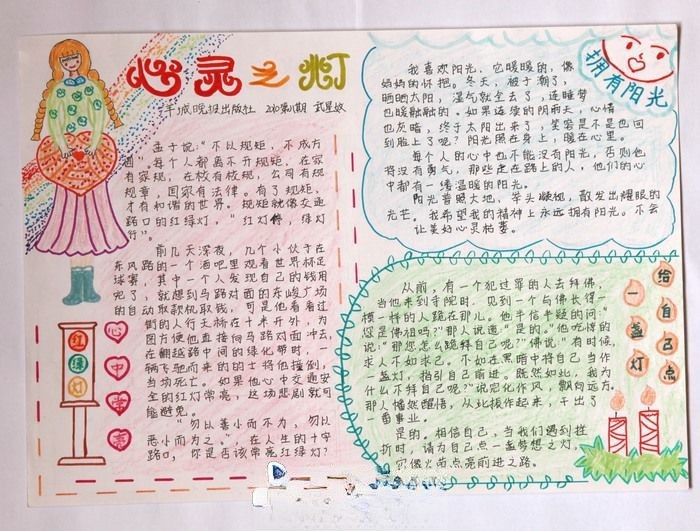 心灵之灯
羊城晚报出版社 2010第11期 武星蛟
孟子说:“不以规矩,不成方
圆”。每个人都离不开规矩,在家
有家规,在校有校规,公司有规
规章,国家有法律。有了规矩,
才有和谐的世界。规矩就像交通
路口的红绿灯,“红灯停,绿灯
行”。
前几天深夜,几个小伙子在
东风路的一个酒吧里观看世界杯足
球赛,其中一个人发现自己的钱用
完了,就想到马路对面的东峻广场
的自动取款机取钱,可是他看着过
街的人行天桥在十米开外,为
图方便他直接向马路对面冲去,
在翻越路中间的绿化带时,
辆飞驰而来的的士将他撞倒,
当场死亡。如果他心中交通安
全的红灯常亮,这场悲剧就可
能避免。
“勿以善小而不为,勿以
恶小而为之。”,在人生的十字
路口,你是否该常亮红绿灯?
红
绿
灯
心
中
常
亮
拥有阳光
我喜欢阳光,它暖暖的,像
妈妈的怀抱。冬天,被子潮了,
晒晒太阳,湿气就全去了,连睡梦
也暖融融的。如果连续的阴雨天,心情
也灰暗,终于太阳出来了,笑容是不是也回
到脸上了呢?阳光照在身上,暖在心里。
每个人的心中也不能没有阳光,否则他
将没有勇气,那些走在路上的人,他们的心
中都有一缕温暖的阳光。
阳光普照大地,举头凝视,散发出耀眼的
光芒。我希望我的精神上永远拥有阳光。不会
让美妙心灵枯萎。
给自己点
一盏灯
从前,有一个犯过罪的人去拜佛,
当他来到寺院时,见到一个与佛长得一
模一样的人跪在那儿,他半信半疑的问:“
您是佛祖吗?”那人说道“是的。”他吃惊的
说:“那您怎么跪拜自己呢?”佛说:“有时候,
求人不如求己,不如在黑暗中将自己当作
一盏灯,指引自己前进。既然如此,我为
什么不拜自己呢?”说完化作风,飘向远方。
那人幡然醒悟,从此振作起来,干出了
一番事业。
是的。相信自己,当我们遇到挫
折时,请为自己点一盏梦想之灯,
它像火苗点亮前进之路。